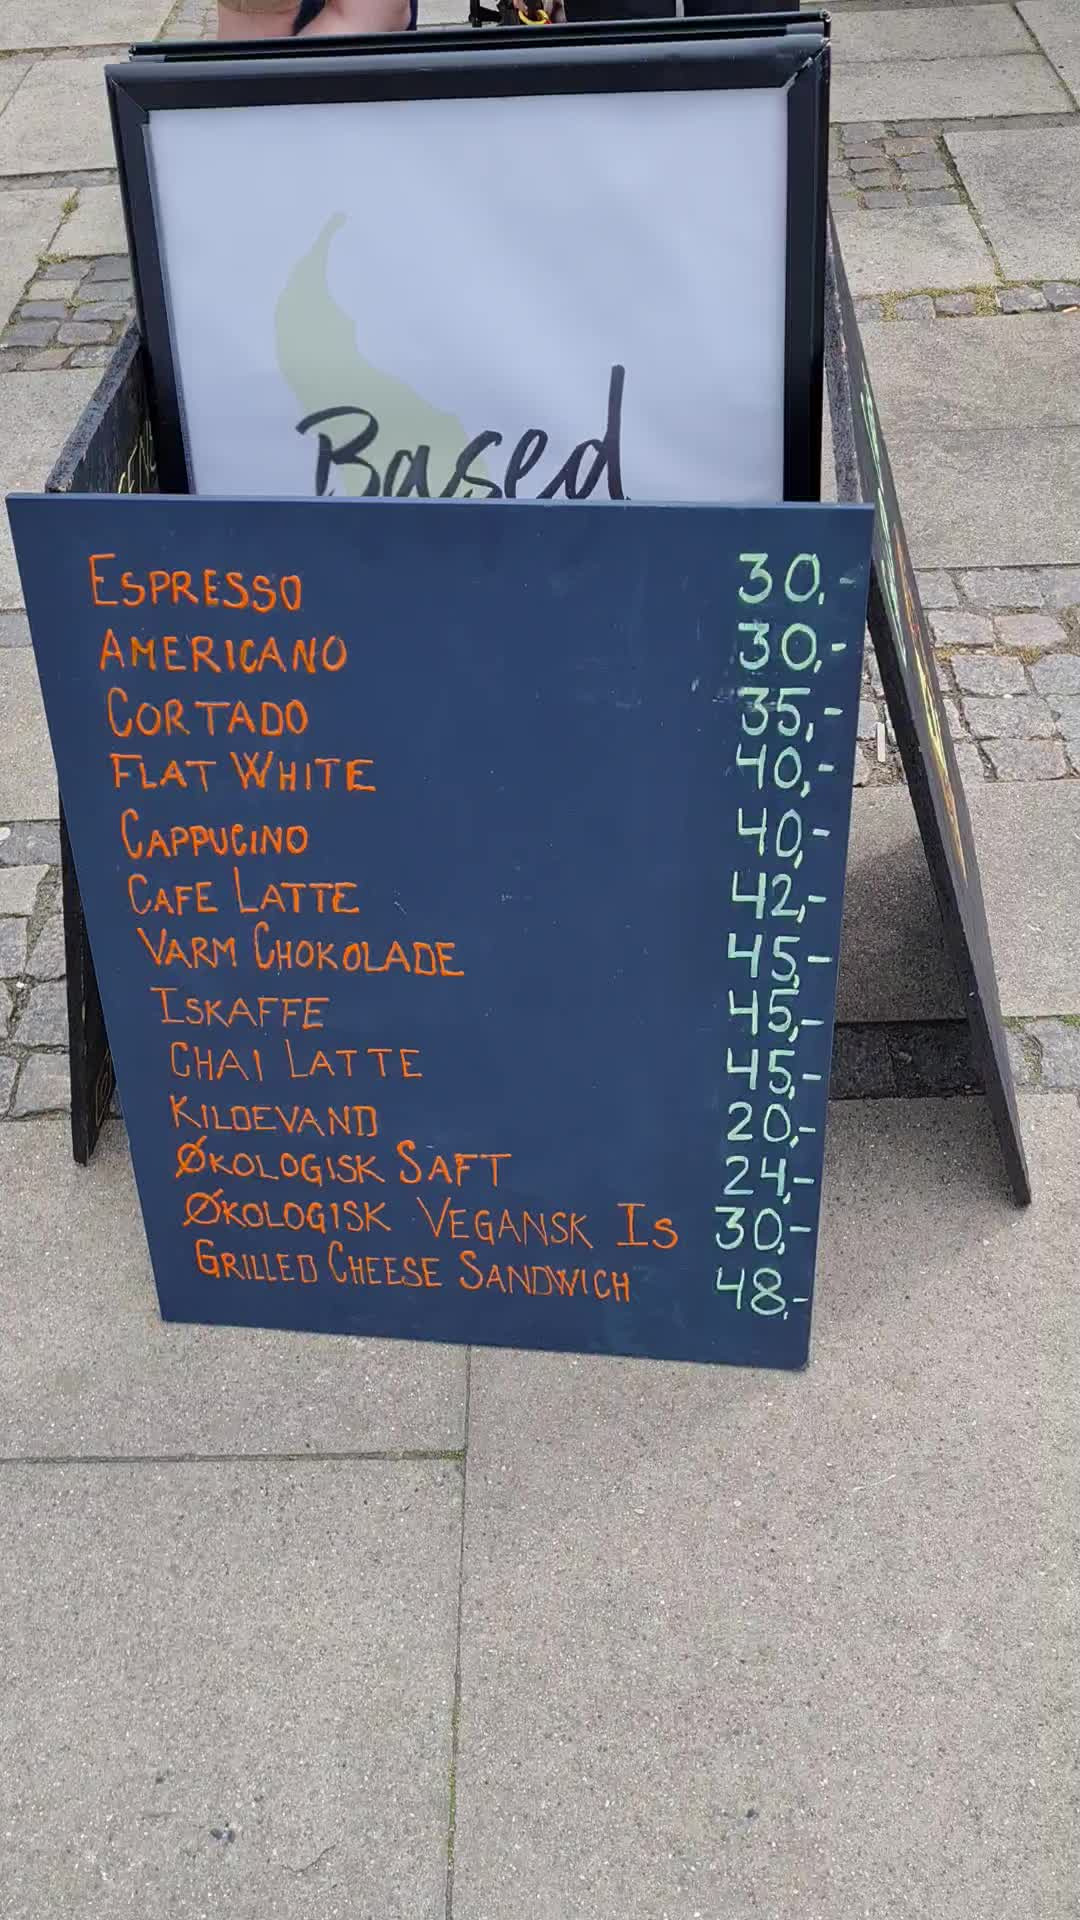 Based
ESPRESSO 30,-
AMERICANO 30,-
CORTADO 35,-
FLAT WHITE 40,-
CAPPUCINO 40,-
CAFE LATTE 42,-
VARM CHOKOLADE 45,-
ISKAFFE 45,-
CHAI LATTE 45,-
KILDEVAND 20,-
ØKOLOGISK SAFT 24,-
ØKOLOGISK VEGANSK IS 30,-
GRILLED CHEESE SANDWICH 48,-